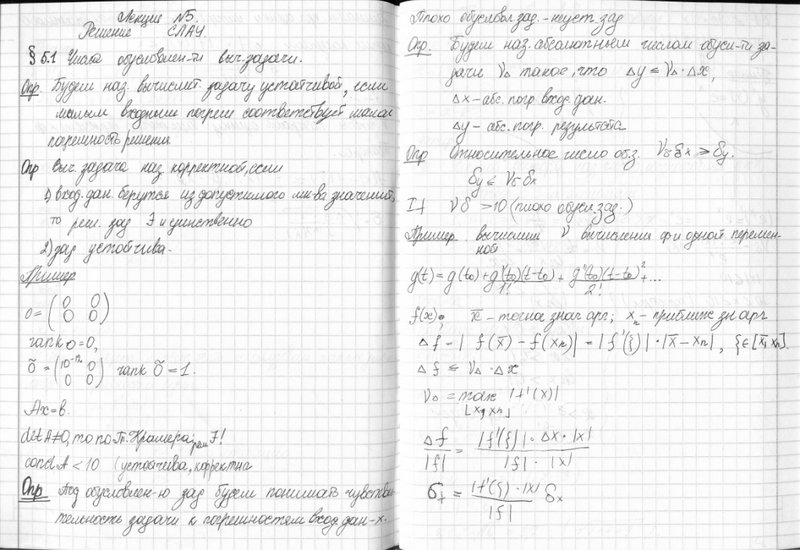 Лекция №5.
Решение СЛАУ.
§ 5.1 Числа обусловлен-ти выч. задачи.
Опр Будем наз. вычислит. задачу устойчивой, если
малым входным погреш соответствует малая
погрешность решения
Опр Выч. задача наз. корректной, если
1) вход. дан. берутся из допустимого мн-ва значений,
то реш. зад ∃ и единственно
2) зад устойчива.
Пример
0 = (0 0
0 0)
rank 0 = 0,
õ = (10⁻¹² 0
0 0) rank õ = 1.
Ax = b.
det A ≠ 0, то по т. Крамера реш ∃!
cond A < 10 (устойчива, корректна
Опр Под обусловлен-ю зад будем понимать чувстви-
тельность задачи к погрешностям вход дан-х.
Плохо обусловл зад. – неуст. зад
Опр. Будем наз. абсолютным числом обусл-ти за-
дачи ν_Δ такое, что Δy ≤ ν_Δ · Δx,
Δx – абс. погр вход. дан.
Δy – абс. погр. результата
Опр Относительное число об.з. ν_δ δx ≥ δy.
δy ≤ ν_δ δx
If νδ > 10 (плохо обусл. зад.)
Пример. вычислим ν вычисления ф-и одной перемен-
ной
g(t) = g(t₀) + g'(t₀)(t-t₀)/1! + g''(t₀)(t-t₀)²/2! + ...
f(x); x̄ – точное знач арг; xₙ – приближ зн арг
Δf = | f(x̄) – f(xₙ)| = |f'(ξ)| · |x̄ – xₙ|, ξ ∈ [x̄, xₙ]
Δf ≤ ν_Δ · Δx
ν_Δ = max |f'(x)|
[x̄, xₙ]
Δf/|f| = |f'(ξ)| · Δx · |x| / |f| · |x|
δ_f = |f'(ξ)| · |x| / |f| δx